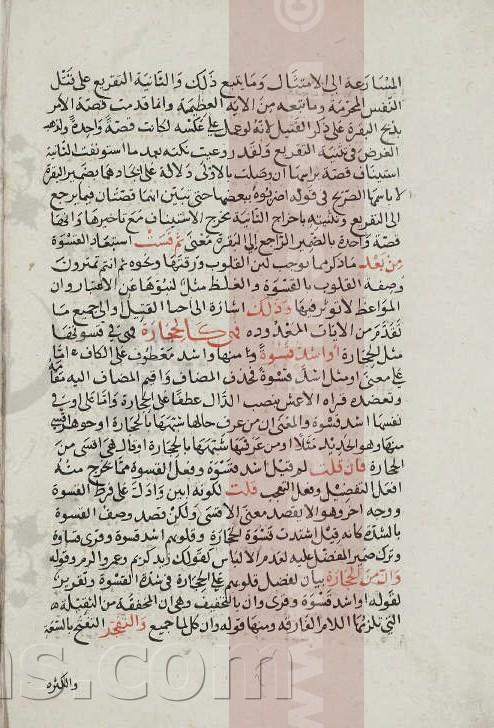 المسارعة الى الامتثال وما يتبع ذلك والثانية التقريع على قتل
النفس المحرمة وما تبعه من الاية العظيمة وانما قدمت قصة الامر
بذبح البقرة على ذكر القتيل لانه لو عمل على عكسه لكانت قصة واحدة ولذهب
الغرض في تثنية التقريع ولقد روعيت نكتة بعد ما استونفت الثانية
استيناف قصة براسها ان وصلت بالاولى دلالة على اتحادهما بضمير البقرة
لا باسمها الصريح في قوله اضربوه ببعضها حتى تبين انهما قصتان فيما يرجع
الى التقريع وتثنيته باخراج الثانية مخرج الاستيناف مع تاخيرها وانها
قصة واحدة بالضمير الراجع الى البقرة معنى ثم قست استبعاد القسوة
من بعد ما ذكر مما يوجب لين القلوب ورقتها ونحوه ثم انتم تمترون
وصفة القلوب بالقسوة والغلظ مثل لنبوها عن الاعتبار وان
المواعظ لا توثر فيها وذلك اشارة الى احيا القتيل والى جميع ما
تقدم من الايات المعدوده فهي كالحجارة فهي في قسوتها
مثل الحجارة او اشد قسوة منها واشد معطوف على الكاف اما
على معنى او مثل اشد قسوة فحذف المضاف واقيم المضاف اليه مقامه
وتعضده قراه الاعمش بنصب الدال عطفا على الحجارة واما على او هي في
نفسها اشد قسوة والمعنى ان من عرف حالها شبهها بالحجارة او جوهر اقسى
منها وهو الحديد مثلا او من عرفها شبهها بالحجارة او قال هي اقسى من
الحجارة فان قلت لم قيل اشد قسوة وفعل القسوة مما يخرج منه
افعل التفضيل وفعل التعجب قلت لكونه ابين وادل على فرط القسوة
ووجه اخر وهو الا يقصد معنى الاقسى ولكن قصد وصف القسوة
بالشدة كانه قيل اشتدت قسوة الحجارة وقلوبهم اشد قسوة وقرى قساوة
وترك ضمير المفضل عليه لعدم الالباس كقولك زيد كريم وعمرو اكرم وقوله
وان من الحجارة بيان لفضل قلوبهم على الحجارة في شدة القسوة وتقرير
لقوله او اشد قسوة وقرى وان بالتخفيف وهي ان المخففة من الثقيلة
التي تلزمها اللام الفارقه ومنها قوله وان كل لما جميع والتفجر التفتح بالسعة
والكثره